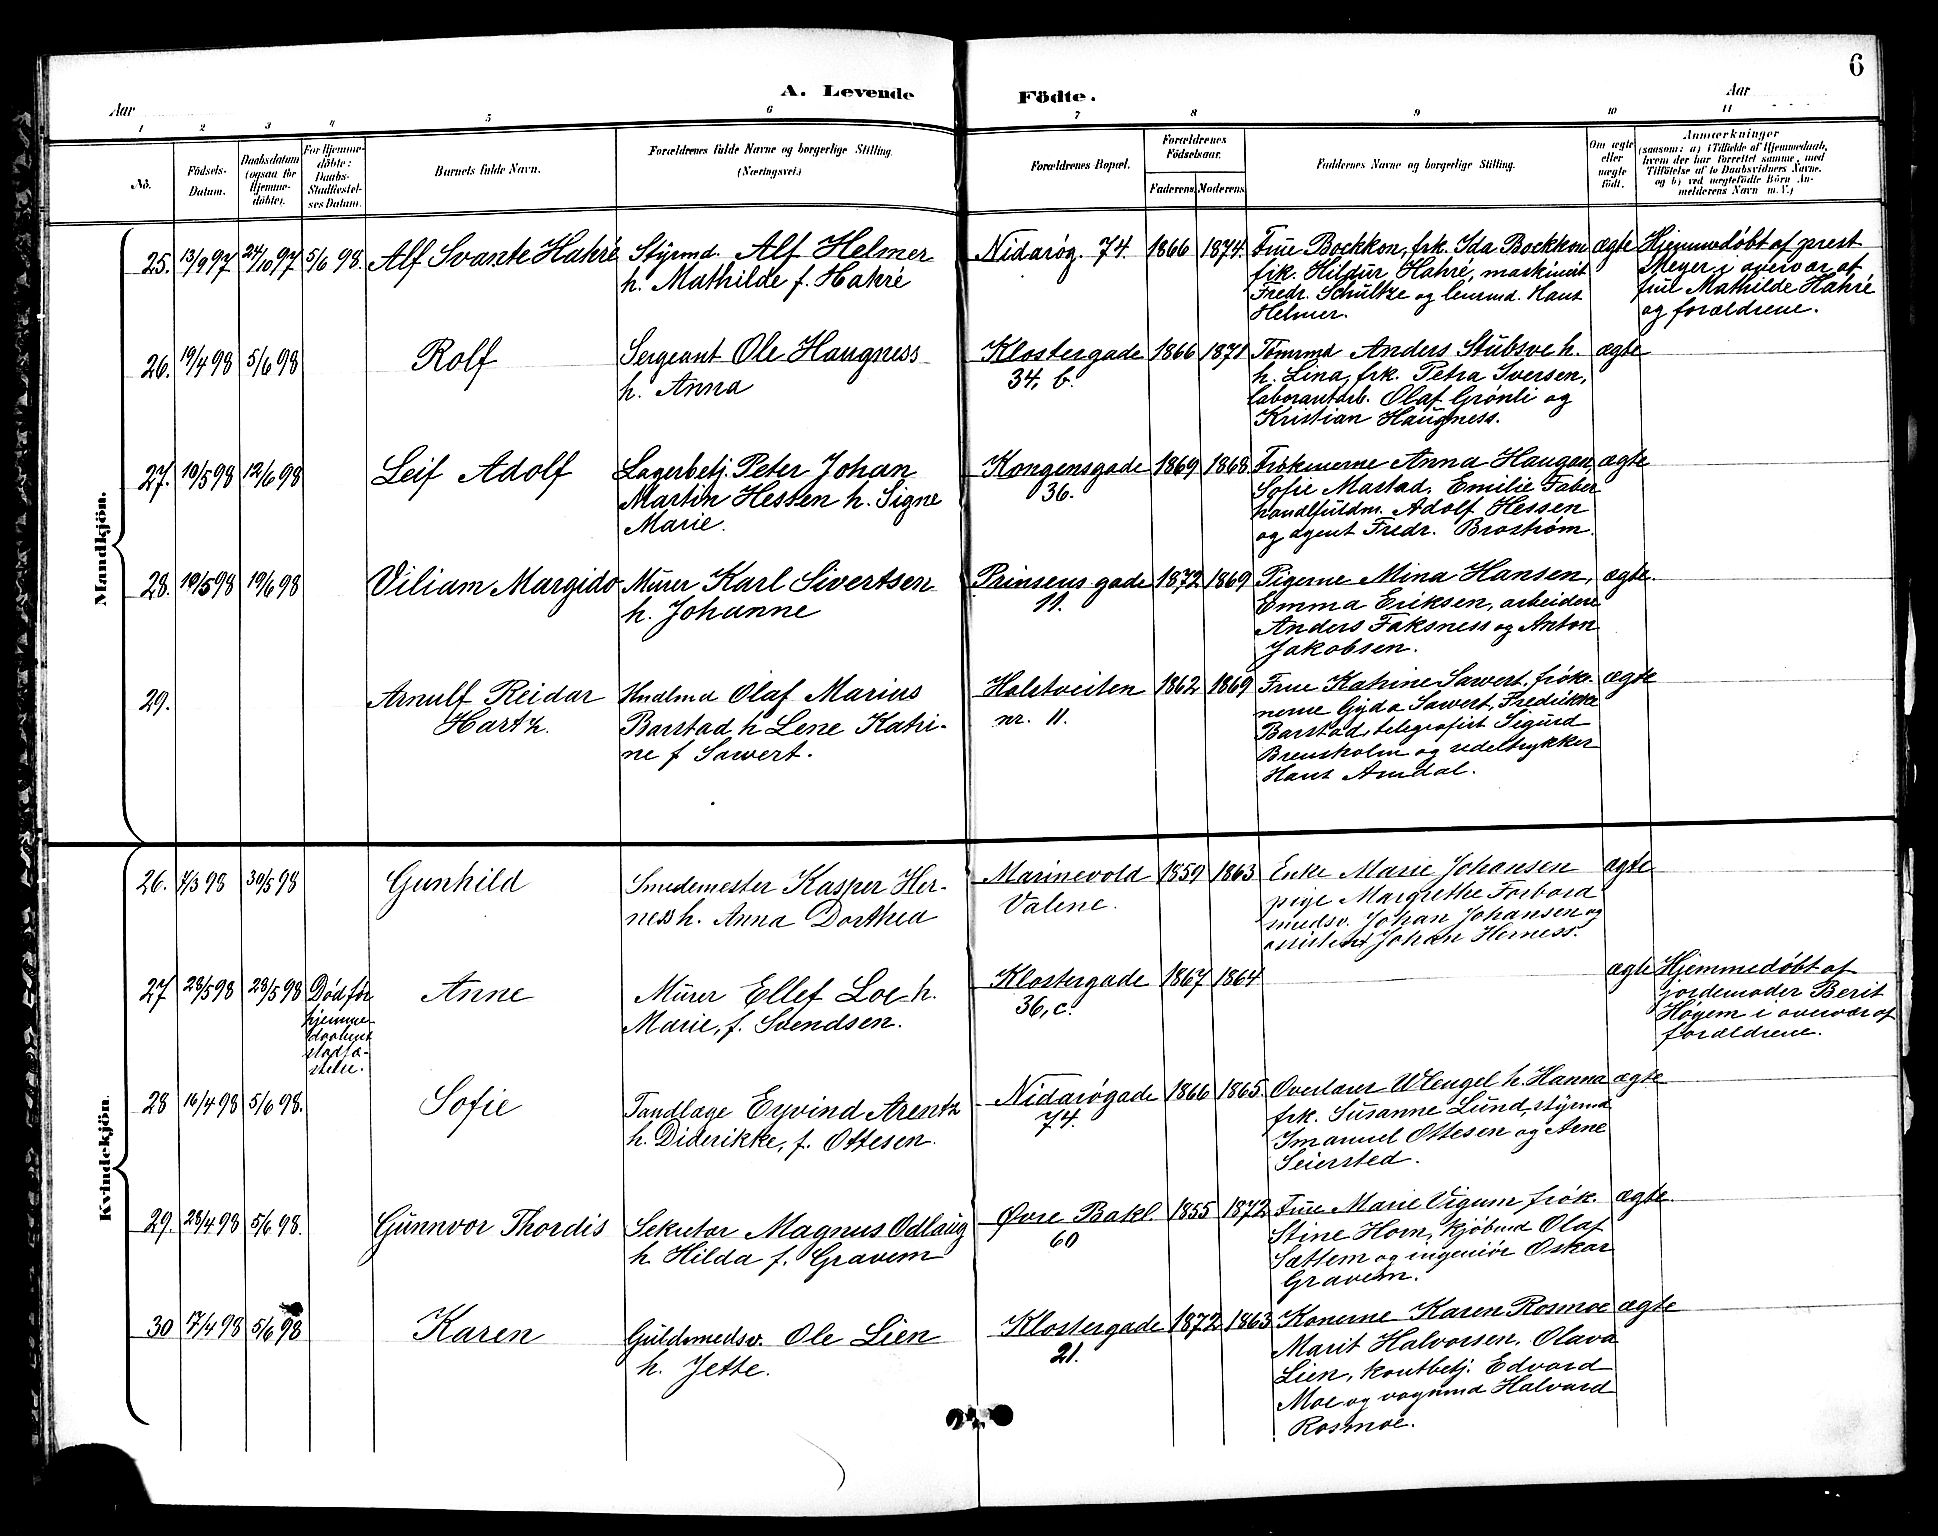 6
A. Levende Födte.
Aar
Aar
1 2 3 4 5 6 7 8 9 10 11
No.
Födsels-Datum.
Daabsdatum (ogsaa for Hjemme-döbte).
For Hjemme-döbte: Daabs-Stadfestel-ses Datum.
Barnets fulde Navn.
Forældrenes fulde Navne og borgerlige Stilling.
(Næringsvei.)
Forældrenes Bopæl.
Forældrenes Födselsaar.
Faderens. Moderens.
Faddernes Navne og borgerlige Stilling.
Om ægte eller uægte födt.
Anmærkninger
(saasom: a) i Tilfælde af Hjemmedaab, hvem der har forrettet samme, med Tilföielse af to Daabsvidners Navne, og b) ved uægtefödte Börn An-melderens Navn m. V.)
Mandkjön.
25. 13/9 97 24/10 97 5/6 98. Alf Svante Hahré
Styrmd. Alf Helmer
h. Mathilde f. Hahré
Nidarøg. 74. 1866 1874.
Frue Bockkon, frk. Ida Bockkon
frk. Hildur Hahré, maskinist
Fredr. Schultze og lensmd. Hans
Helmer.
ægte
Hjemmedøbt af prest
Meyer i overvær af
frue Mathilde Hahré
og forældrene.
26. 19/4 98 5/6 98 Rolf
Sergeant Ole Haugness
h. Anna
Klostergade 1866 1871
34, b.
Tømmd Anders Stubsve h.
h. Lina, frk. Petra Iversen,
laborantarb. Olaf Grønli og
Kristian Haugness.
ægte
27. 10/5 98 12/6 98 Leif Adolf
Lagerbetj. Peter Johan
Martin Hessen h. Signe
Marie.
Kongensgade 1869 1868.
36.
Frøknerne Anna Haugen,
Sofie Mastad, Emilie Faber
handlfuldm. Adolf Hessen
og agent Fredr. Brostrøm.
ægte
28. 10/5 98 19/6 98 Viliam Margido
Murer Karl Sivertsen
h. Johanne
Prinsens gade 1872 1869
11.
Pigerne Mina Hansen,
Emma Eriksen, arbeidere
Anders Faksness og Anton
Jakobsen.
ægte.
29. Arnulf Reidar
Hartz.
Hndlmd Olaf Marius
Barstad h Lene Katri-
ne f Sawert.
Holstveiten 1862 1869
nr. 11.
Frue Katrine Sawert, frøk-
nerne Gyda Sawert, Fredrikke
Barstad, telegrafist Sigurd
Brensholm og sedeltrykker
Hans Amdal.
ægte
Kvindekjön.
26. 7/3 98 30/5 98 Gunhild
Smedemester Kasper Her-
ness h. Anna Dorthea
Marinevold 1859 1863
Valene.
Enke Marie Johansen
pige Margrethe Forbord
smedsv. Johan Johansen og
assistent Johan Herness.
ægte
27 28/5 98 28/5 98 Død før
hjemme-
daabens
stadfæ-
stelse.
Anne
Murer Ellef Loe h.
Marie, f. Svendsen.
Klostergade 1867 1864
36, c.
ægte
Hjemmedøbt af
jordemoder Berit
Høyem i overvær af
forældrene.
28 16/4 98 5/6 98. Sofie
Tandlæge Eyvind Arentz
h. Diderikke, f. Ottesen.
Nidarøgade 1866 1865.
74.
Overlærer Wleugel h. Hanna
frk. Susanne Lund, styrmd
Imanuel Ottesen og Arne
Seiersted.
ægte
29. 28/4 98 5/6 98. Gunnvor Thordis
Sekretær Magnus Odlaug
h. Hilda f. Gravem
Øvre Bakl. 1855 1872
60
Frue Marie Vigum, frøk.
Stine Horn, kjøbmd Olaf
Sættem og ingeniør Oskar
Gravem.
ægte.
30 17/4 98 5/6 98 Karen
Guldsmedsv. Ole Lien
h. Jette.
Klostergade 1872 1863
21.
Konerne Karen Rosmoe
Marit Halvorsen, Olava
Lien, kontbetj. Edvard
Moe og vognmd Halvard
Rosmoe.
ægte